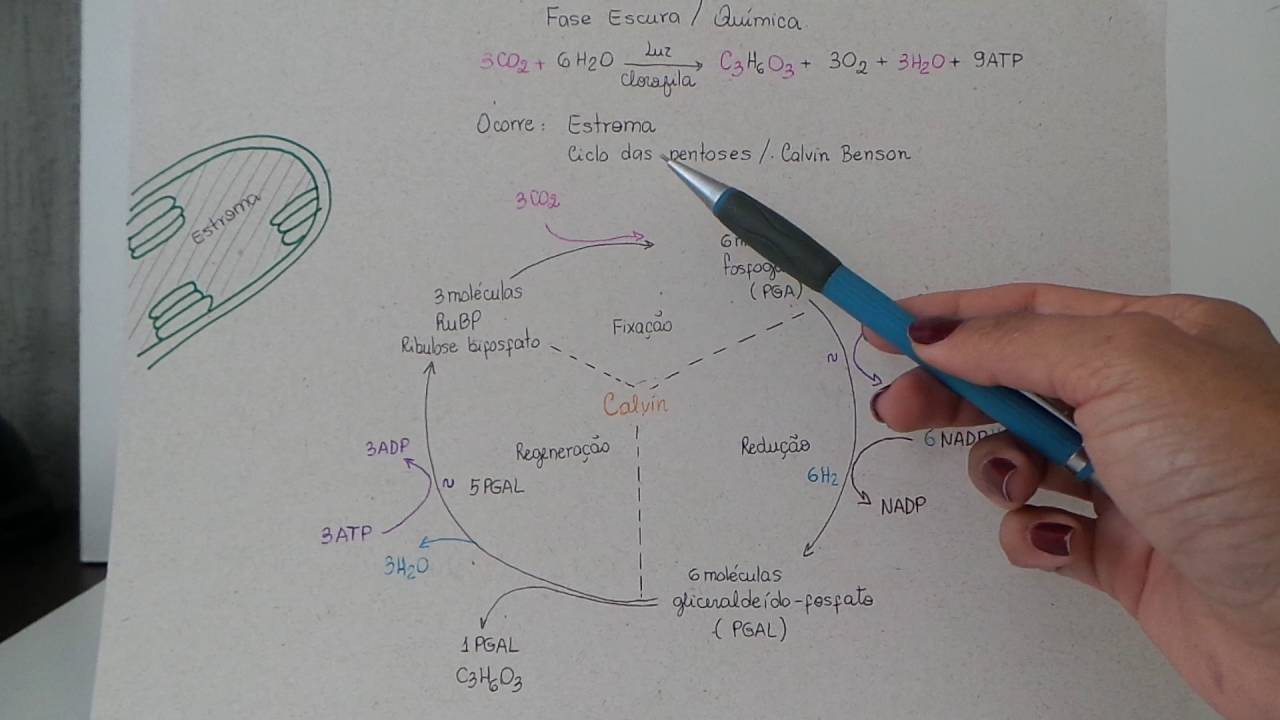 Fase Escura / Química
3CO₂ + 6H₂O Luz C₃H₆O₃ + 3O₂ + 3H₂O + 9ATP
clorofila
Ocorre: Estroma
Ciclo das pentoses /. Calvin Benson
Estroma
3CO₂
6
(PGA)
3 moléculas
RuBP
Ribulose bifosfato
Fixação
~
Calvin
3ADP
Regeneração
Redução
6
6H₂
~ 5PGAL
NADP
3ATP
3H₂O
6 moléculas
gliceraldeído-fosfato
(PGAL)
1 PGAL
C₃H₆O₃